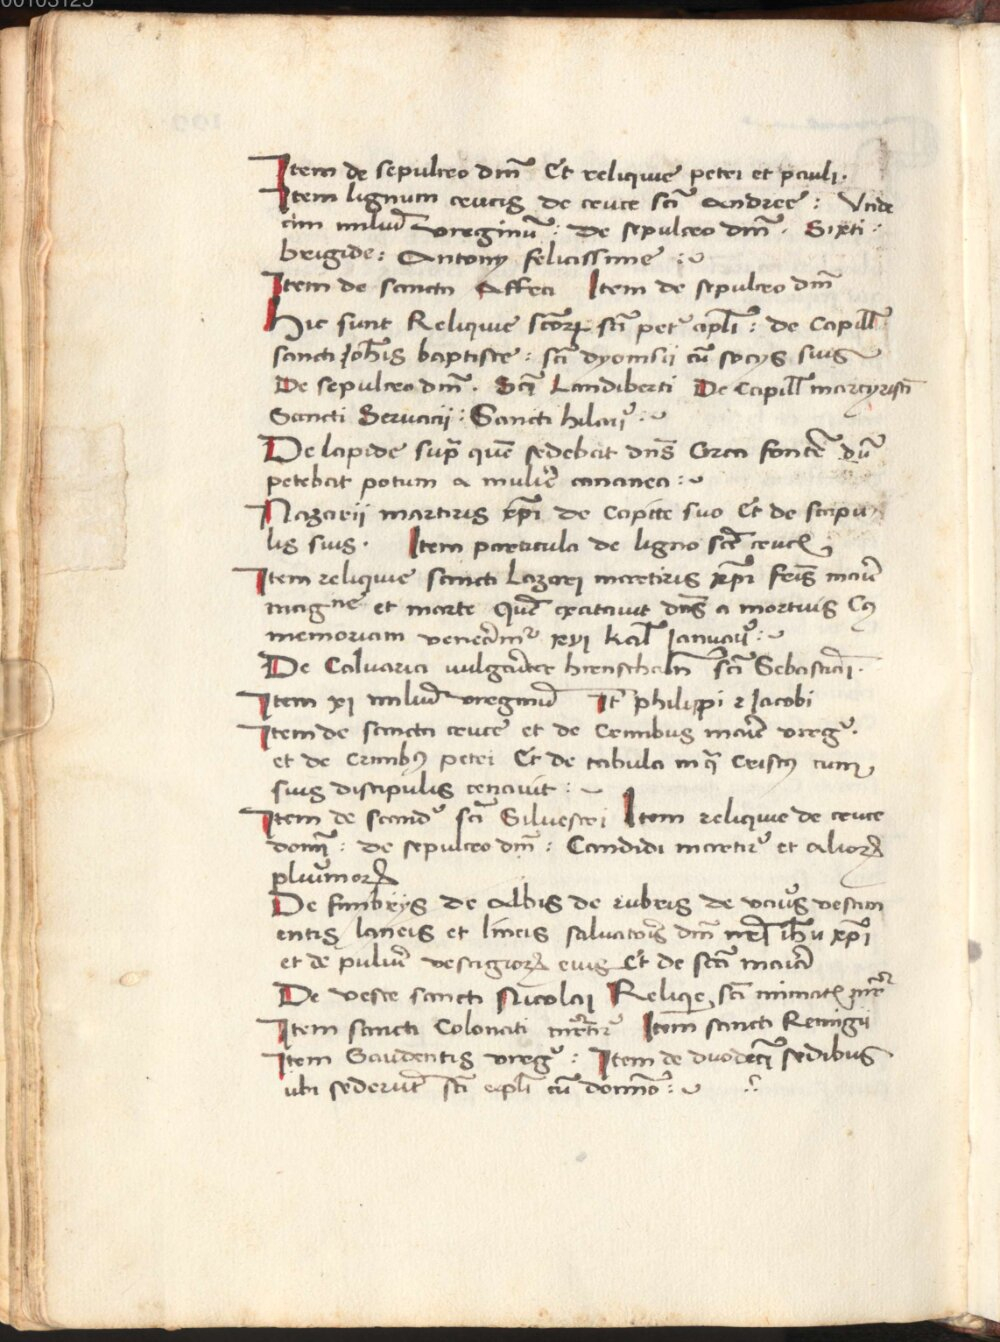 00103125
Item de sepulcro dm̄ Et reliquie petri et pauli.
Item lignum crucis de cruce scī Andree : Unde
cim miliū virginū : de sepulcro dm̄ . Sixti :
brigide : Antony felicissime :
Item de sancta Affra Item de sepulcro dm̄
Hic sunt Reliquie scōrꝝ scī petˢ apl̄i : de Capill̄
sancti Joh̄is baptiste : scī dyonisii cū socys suis
De sepulcro dm̄ . Scī Landiberti De Capill̄
Sancti Servacii : Sancti hilarii :
De lapide sup̄ quē sedebat dn̄s Circa fontē dū
petebat potum a muliē cananea :
Nazarii martiris xp̄i de Capite suo Et de scapu
lis suis . Item particula de ligno scē cruc̄
Item reliquie sancti Lazari martiris xp̄i frīs marie
mag̅ⁿᵉ et marte Quē excitavit dn̄s a mortuis Cꝰ
memoriam veneramᵘʳ xvi kal̄ Januarii :
De Calvaria vulgariter hirenschaln scī Sebastiāi .
Item xi miliū virginū It̄ philippi ⁊ Jacobi
Item de sancta cruce et de Crinibus marie virgꝰ .
et de crinibꝰ petri Et de tabula in q̄ Cristꝰ cum
suis discipulis cenavit :
Item de scī Silvestri Item reliquie de cruce
domī : de sepulcro dm̄ : Candidi martirꝰ et aliorꝝ
plurimorꝝ
De fimbriis de Albis de rubris de vestim
entis laneis et lineis salvatoris dm̄ nr̄i ih̄u xp̄i
et de pulvē vestigiorꝝ eius Et de scā maria
De veste sancti Nicolai Reliqie scī
Item sancti Colonati mr̄tirꝰ Item sancti Remigii
Item Gaudentis virgꝰ : Item de duodecī sedibus
ubi sederūt scī apl̄i cū domino :